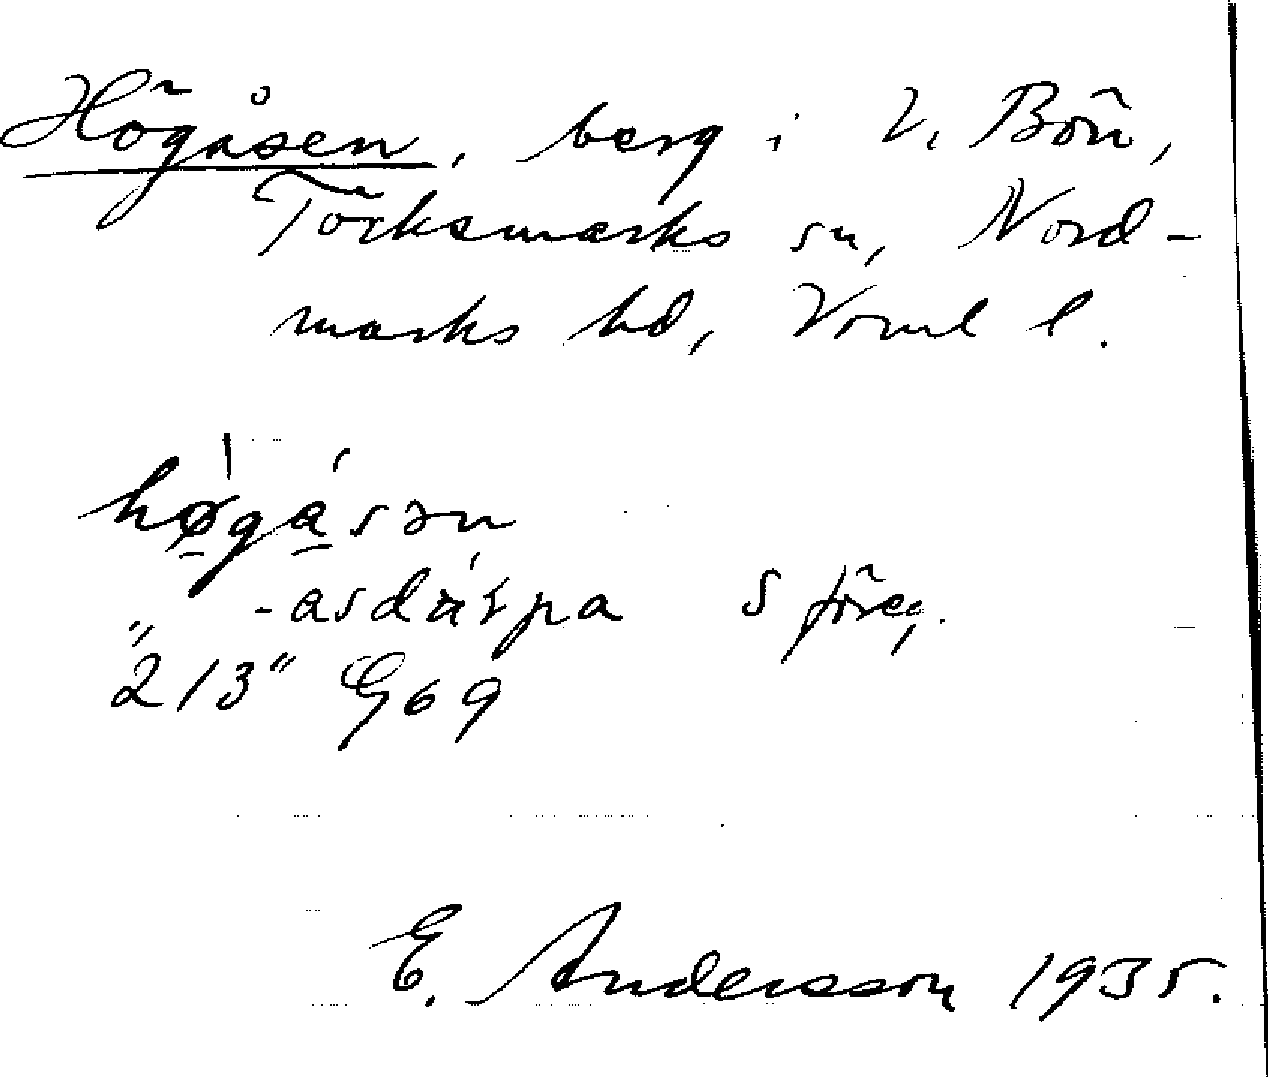 Högåsen, berg i V. Bön,
Töcksmarks sn, Nord-
marks hd, Vrml l.
høgåsən
-asdårpa S föreg.
"2/3" G69
E. Andersson 1935.